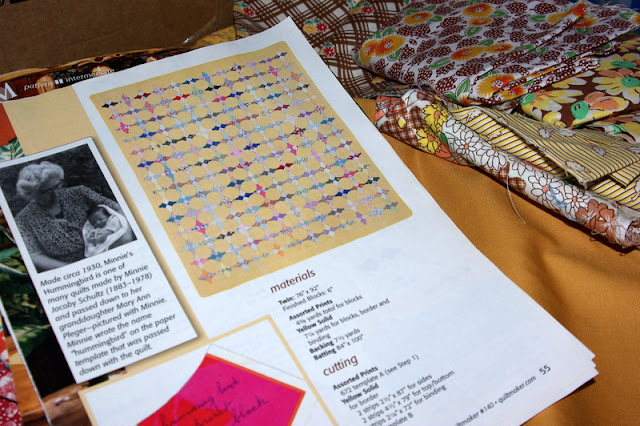 pattern intermediate
Made circa 1930, Minnie's
Hummingbird is one of
many quilts made by Minnie
Jacoby Schultz (1883–1978)
and passed down to her
granddaughter Mary Ann
Pleger—pictured with Minnie.
Minnie wrote the name
"hummingbird" on the paper
template that was passed
down with the quilt.
materials
Twin: 76" x 92"
Finished Blocks: 6"
Assorted Prints
4⅝ yards total for blocks
Yellow Solid
7¼ yards for blocks, border and
binding
Backing 7½ yards
Batting 84" x 100"
cutting
Assorted Prints
672 template A (see Step 1)
Yellow Solid
for border
2 strips 2½" x 87" for sides
2 strips 4½" x 79" for top/bottom
strips 2¼" x 72" for binding
template B
humming bird
block
#140 • quiltmaker.com 55